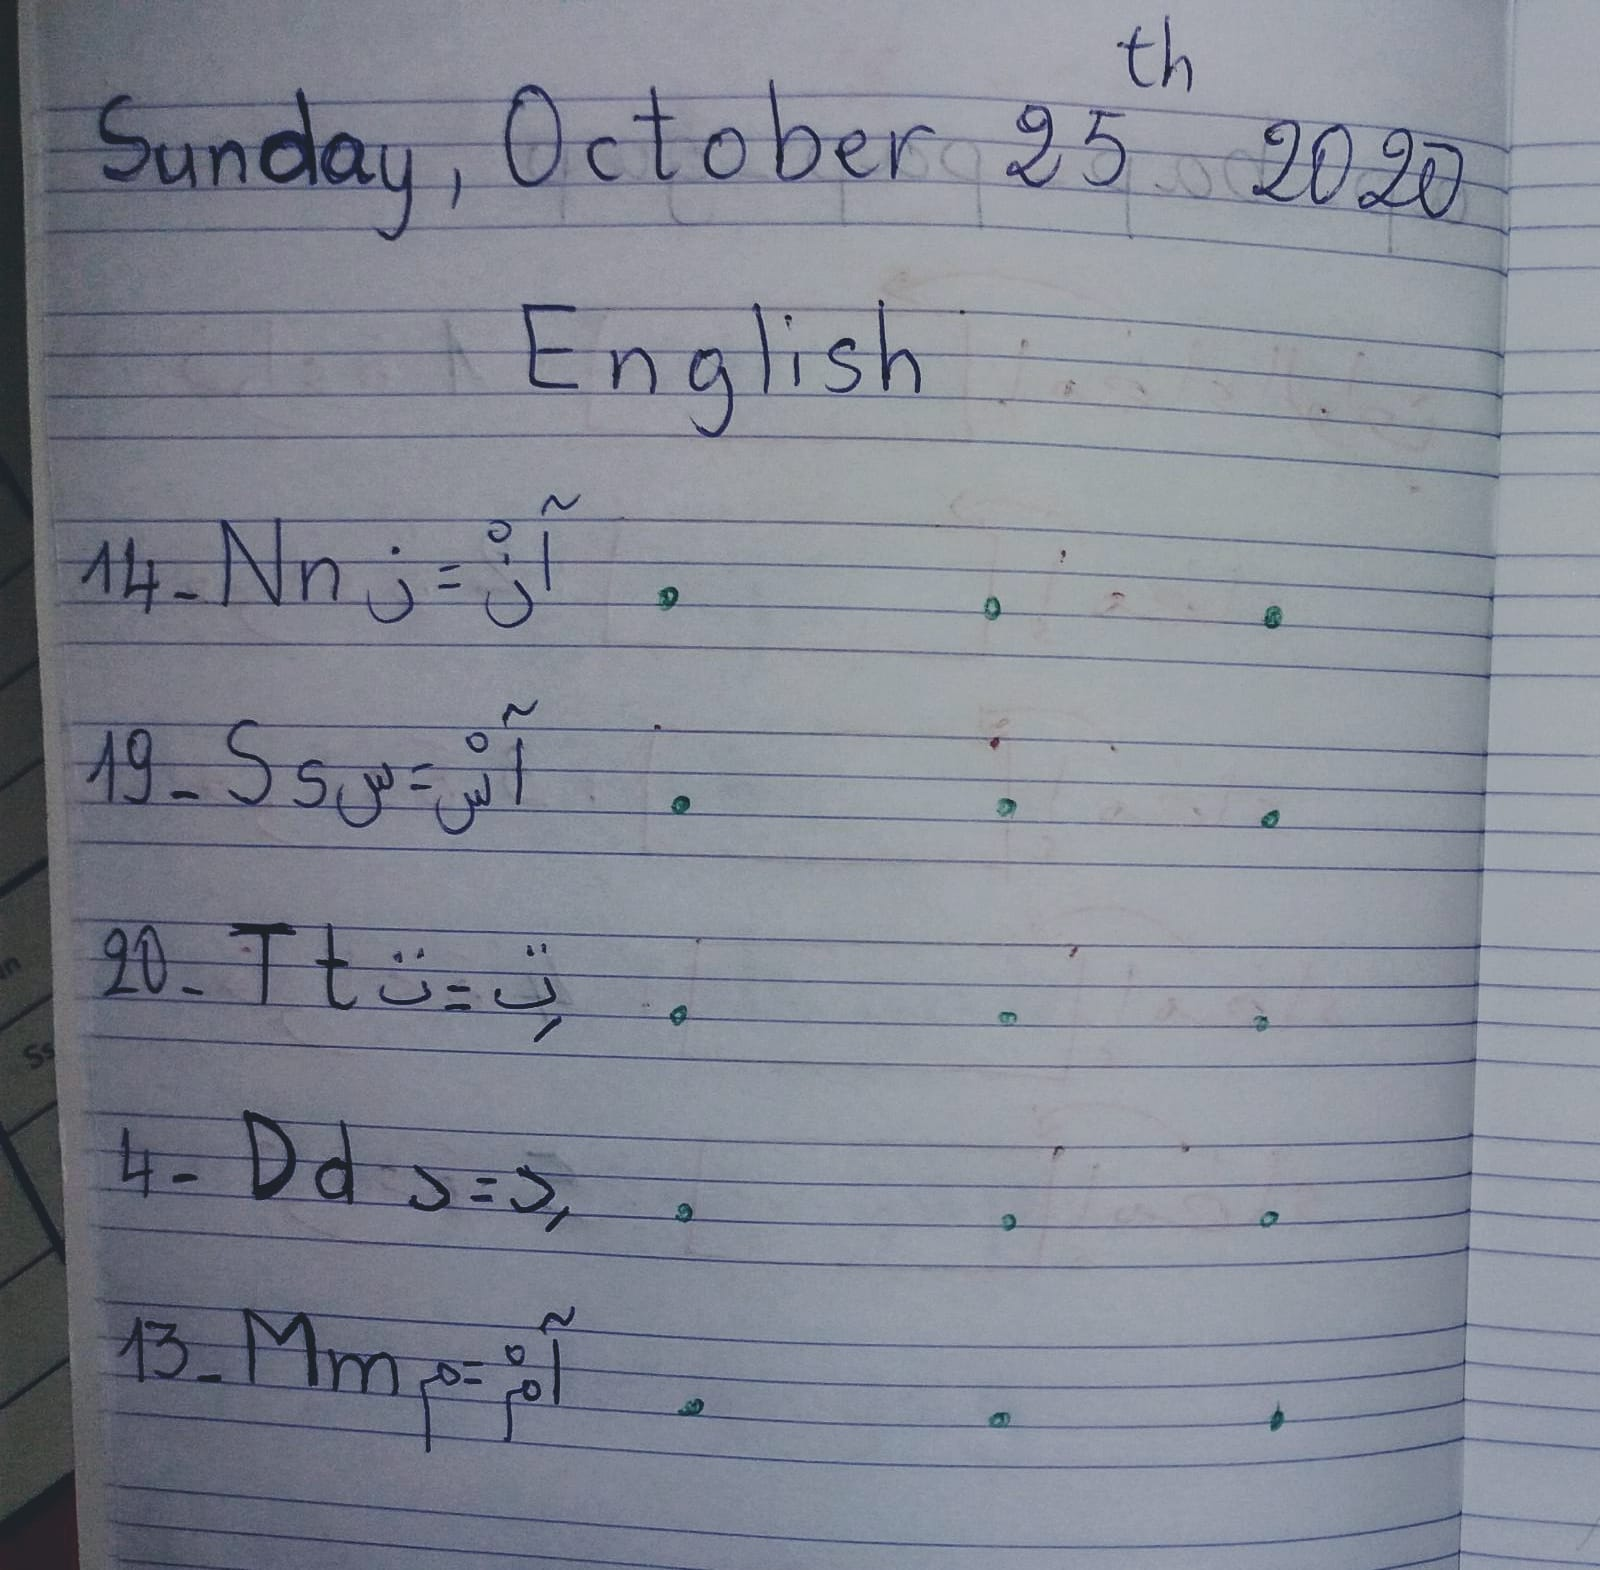 Sunday, October 25th 2020
English
14- Nn ن = آنْ
19- Ss س = آسْ
20- Tt ت = تِ
4- Dd د = دِ
13- Mm م = آمْ
Ss